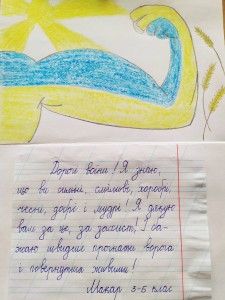 Дорогі воїни! Я знаю,
що ви сильні, сміливі, хоробрі,
чесні, добрі і мудрі! Я дякую
вам за це, за захист, і ба-
жаю швидше прогнати ворога
і повернутися живими!
Макар 3-Б клас